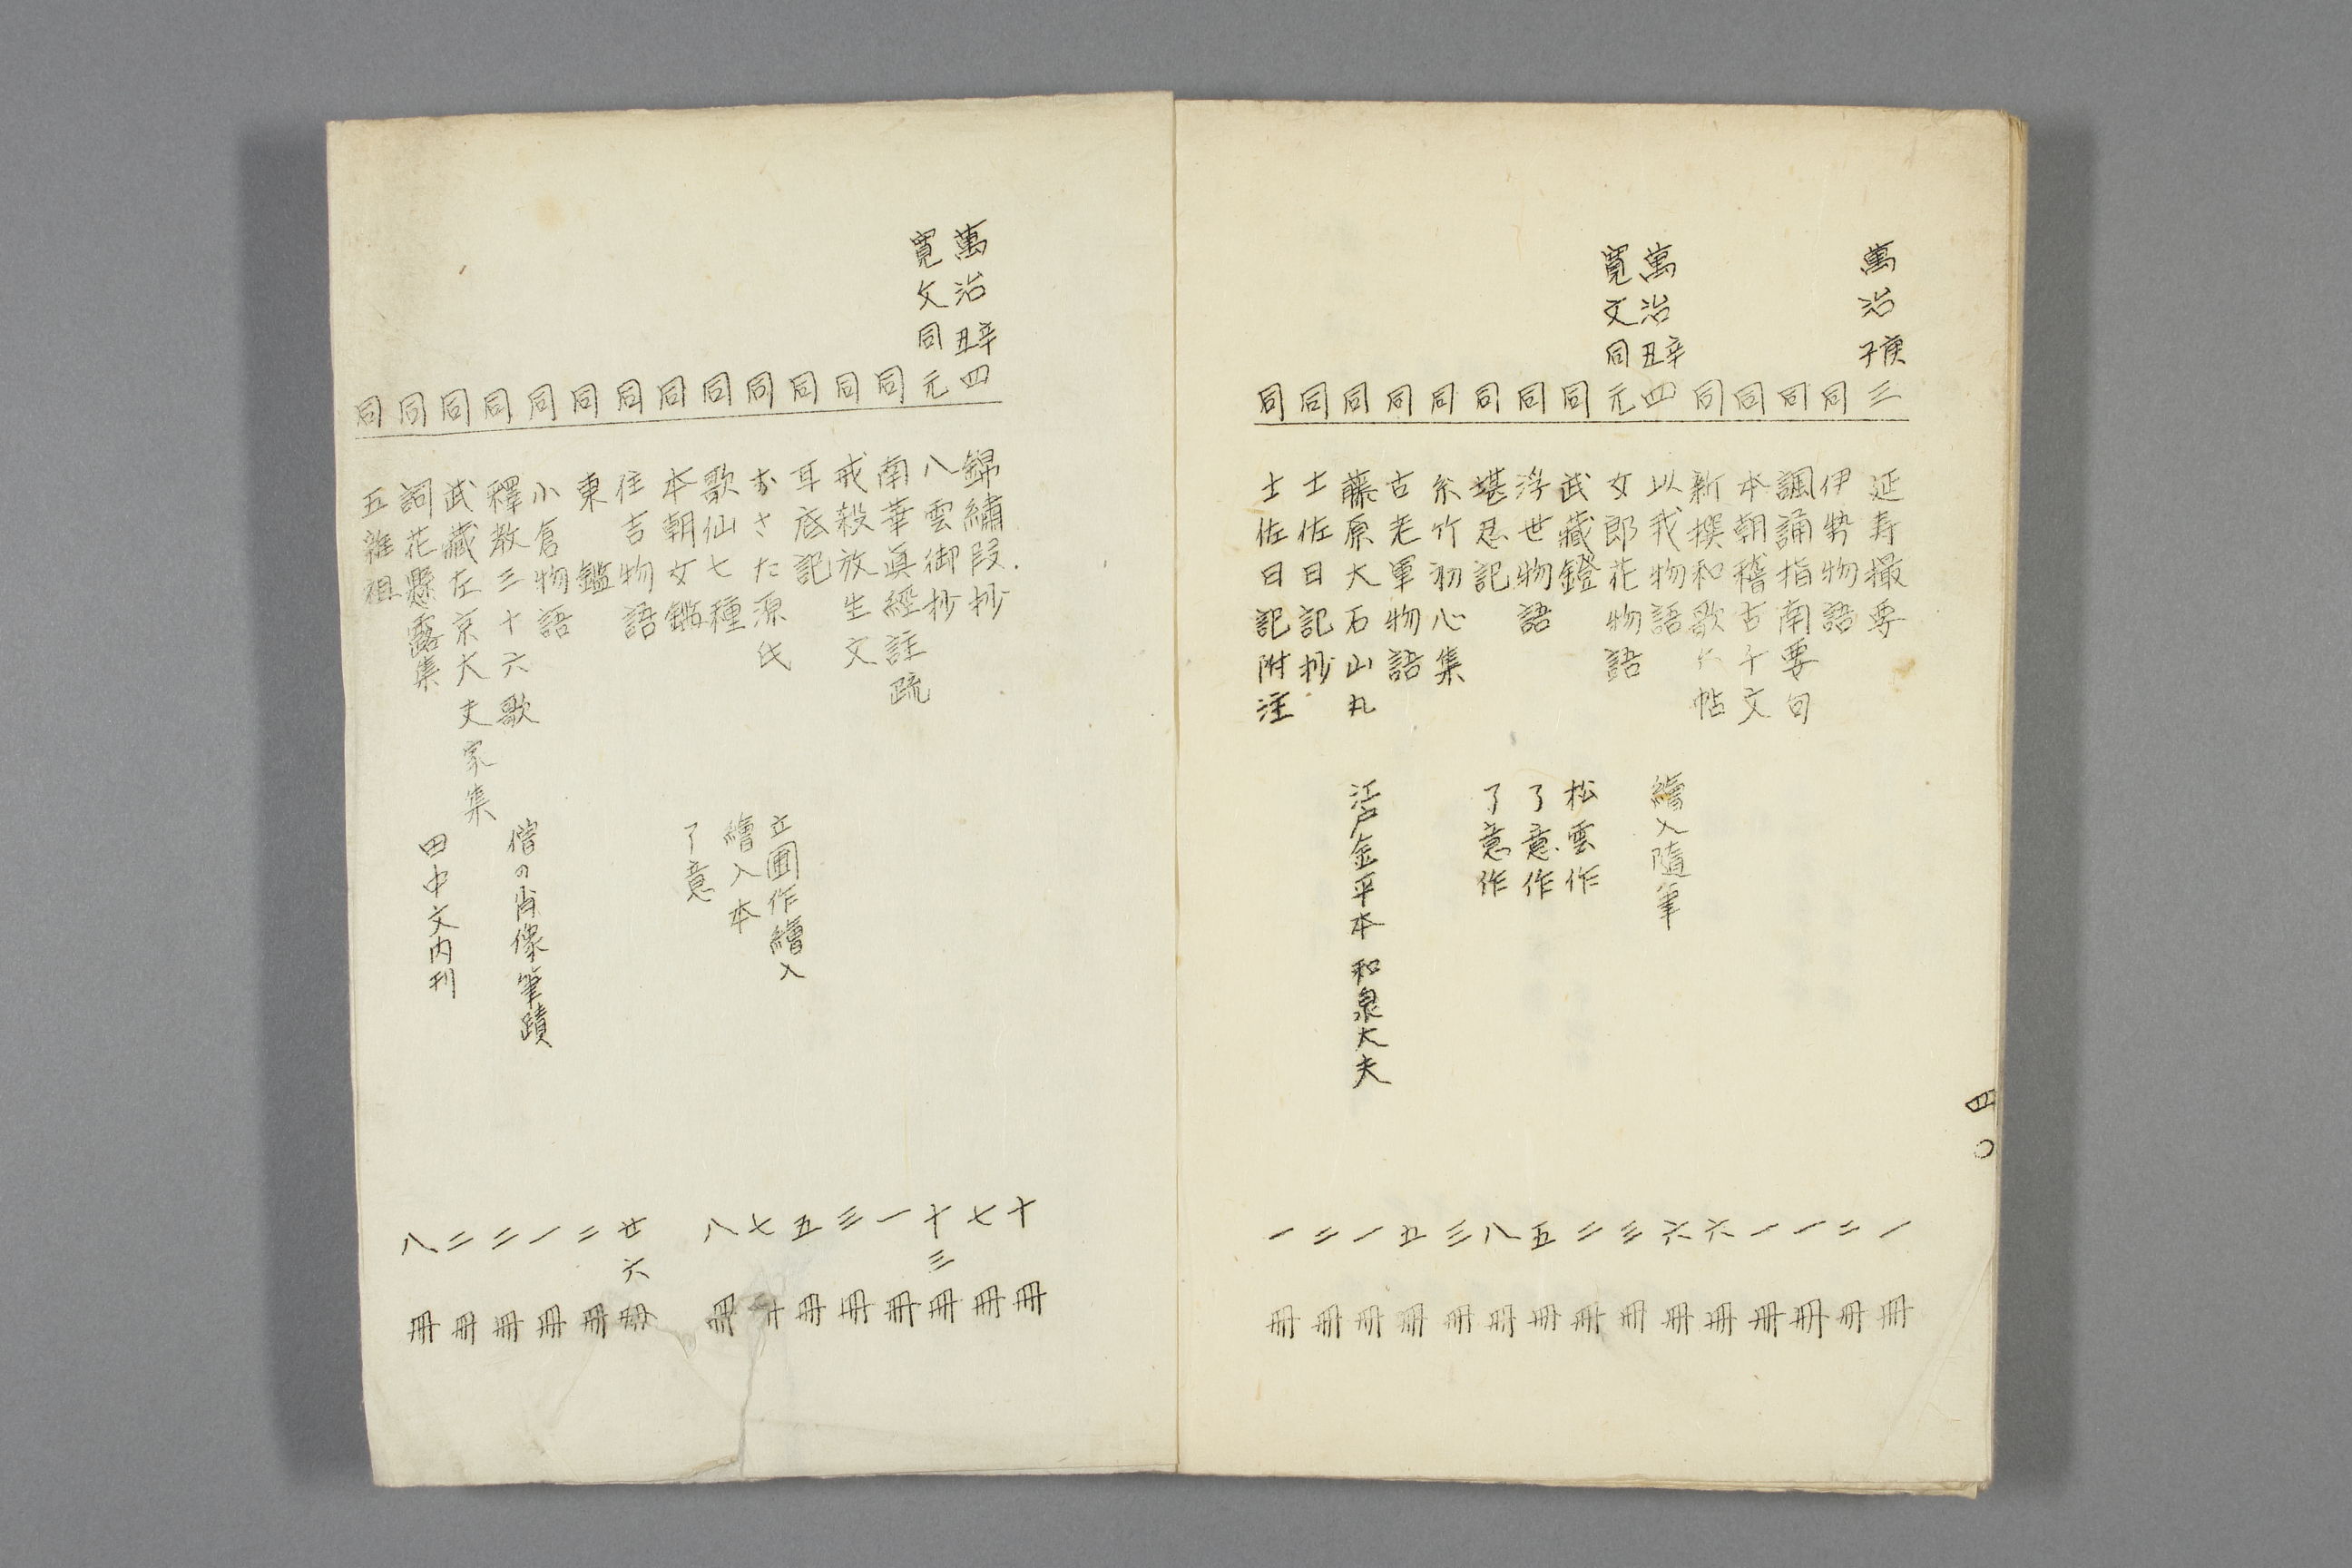 萬治庚子三 延寿撮要 一冊
同 伊勢物語 二冊
同 諷誦指南要句 一冊
同 本朝稽古千文 一冊
同 新撰和歌六帖 六冊
萬治辛丑四 以我物語 繪入隨筆 六冊
寛文同元 女郎花物語 三冊
同 武藏鐙 松雲作 二冊
同 浮世物語 了意作 五冊
同 堪忍記 了意作 八冊
同 糸竹初心集 三冊
同 古老軍物語 五冊
同 藤原大石山丸 江戸金平本 和泉太夫 一冊
同 土佐日記抄 二冊
同 土佐日記附注 一冊
四〇
萬治辛丑四 錦繡段抄 十冊
寛文同元 八雲御抄 七冊
同 南華眞經註疏 十三冊
同 戒殺放生文 一冊
同 耳底記 三冊
同 おさた源氏 立圃作繪入 五冊
同 歌仙七種 繪入本 七冊
同 本朝女鑑 了意 八冊
同 住吉物語
同 東鑑 廿六冊
同 小倉物語 二冊
同 釋教三十六歌 僧の肖像筆蹟 一冊
同 武藏左京大夫家集 二冊
同 詞花懸露集 田中文内刊 二冊
同 五雜祖 八冊